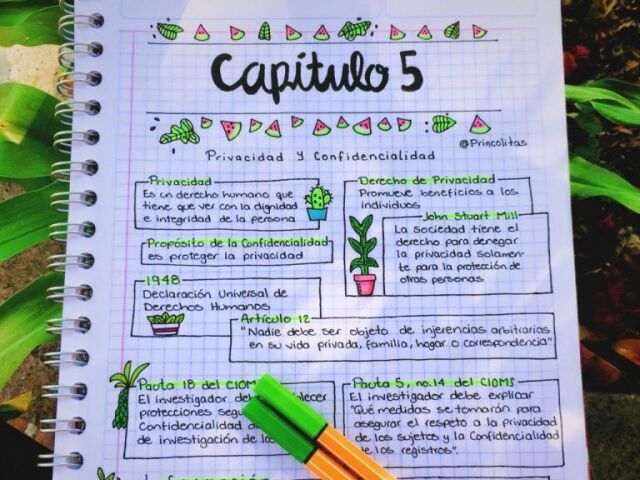 Capítulo 5
@Princolitas
Privacidad y Confidencialidad
Privacidad
Es un derecho humano que
tiene que ver con la dignidad
e integridad de la persona
Propósito de la Confidencialidad
es proteger la privacidad
1948
Declaración Universal de
Derechos Humanos
Derecho de Privacidad
Promueve beneficios a los
individuos
John Stuart Mill
La sociedad tiene el
derecho para denegar
la privacidad solamen-
te para la protección de
otras personas
Artículo 12
"Nadie debe ser objeto de injerencias arbitrarias
en su vida privada, familia, hogar o correspondencia"
Pauta 18 del CIOMS
El investigador
protecciones
Confidencialidad
de investigación de
Pauta 5, no.14 del CIOMS
El investigador debe explicar
"Qué medidas se tomarán para
asegurar el respeto a la privacidad
de los sujetos y la Confidencialidad
de los registros".